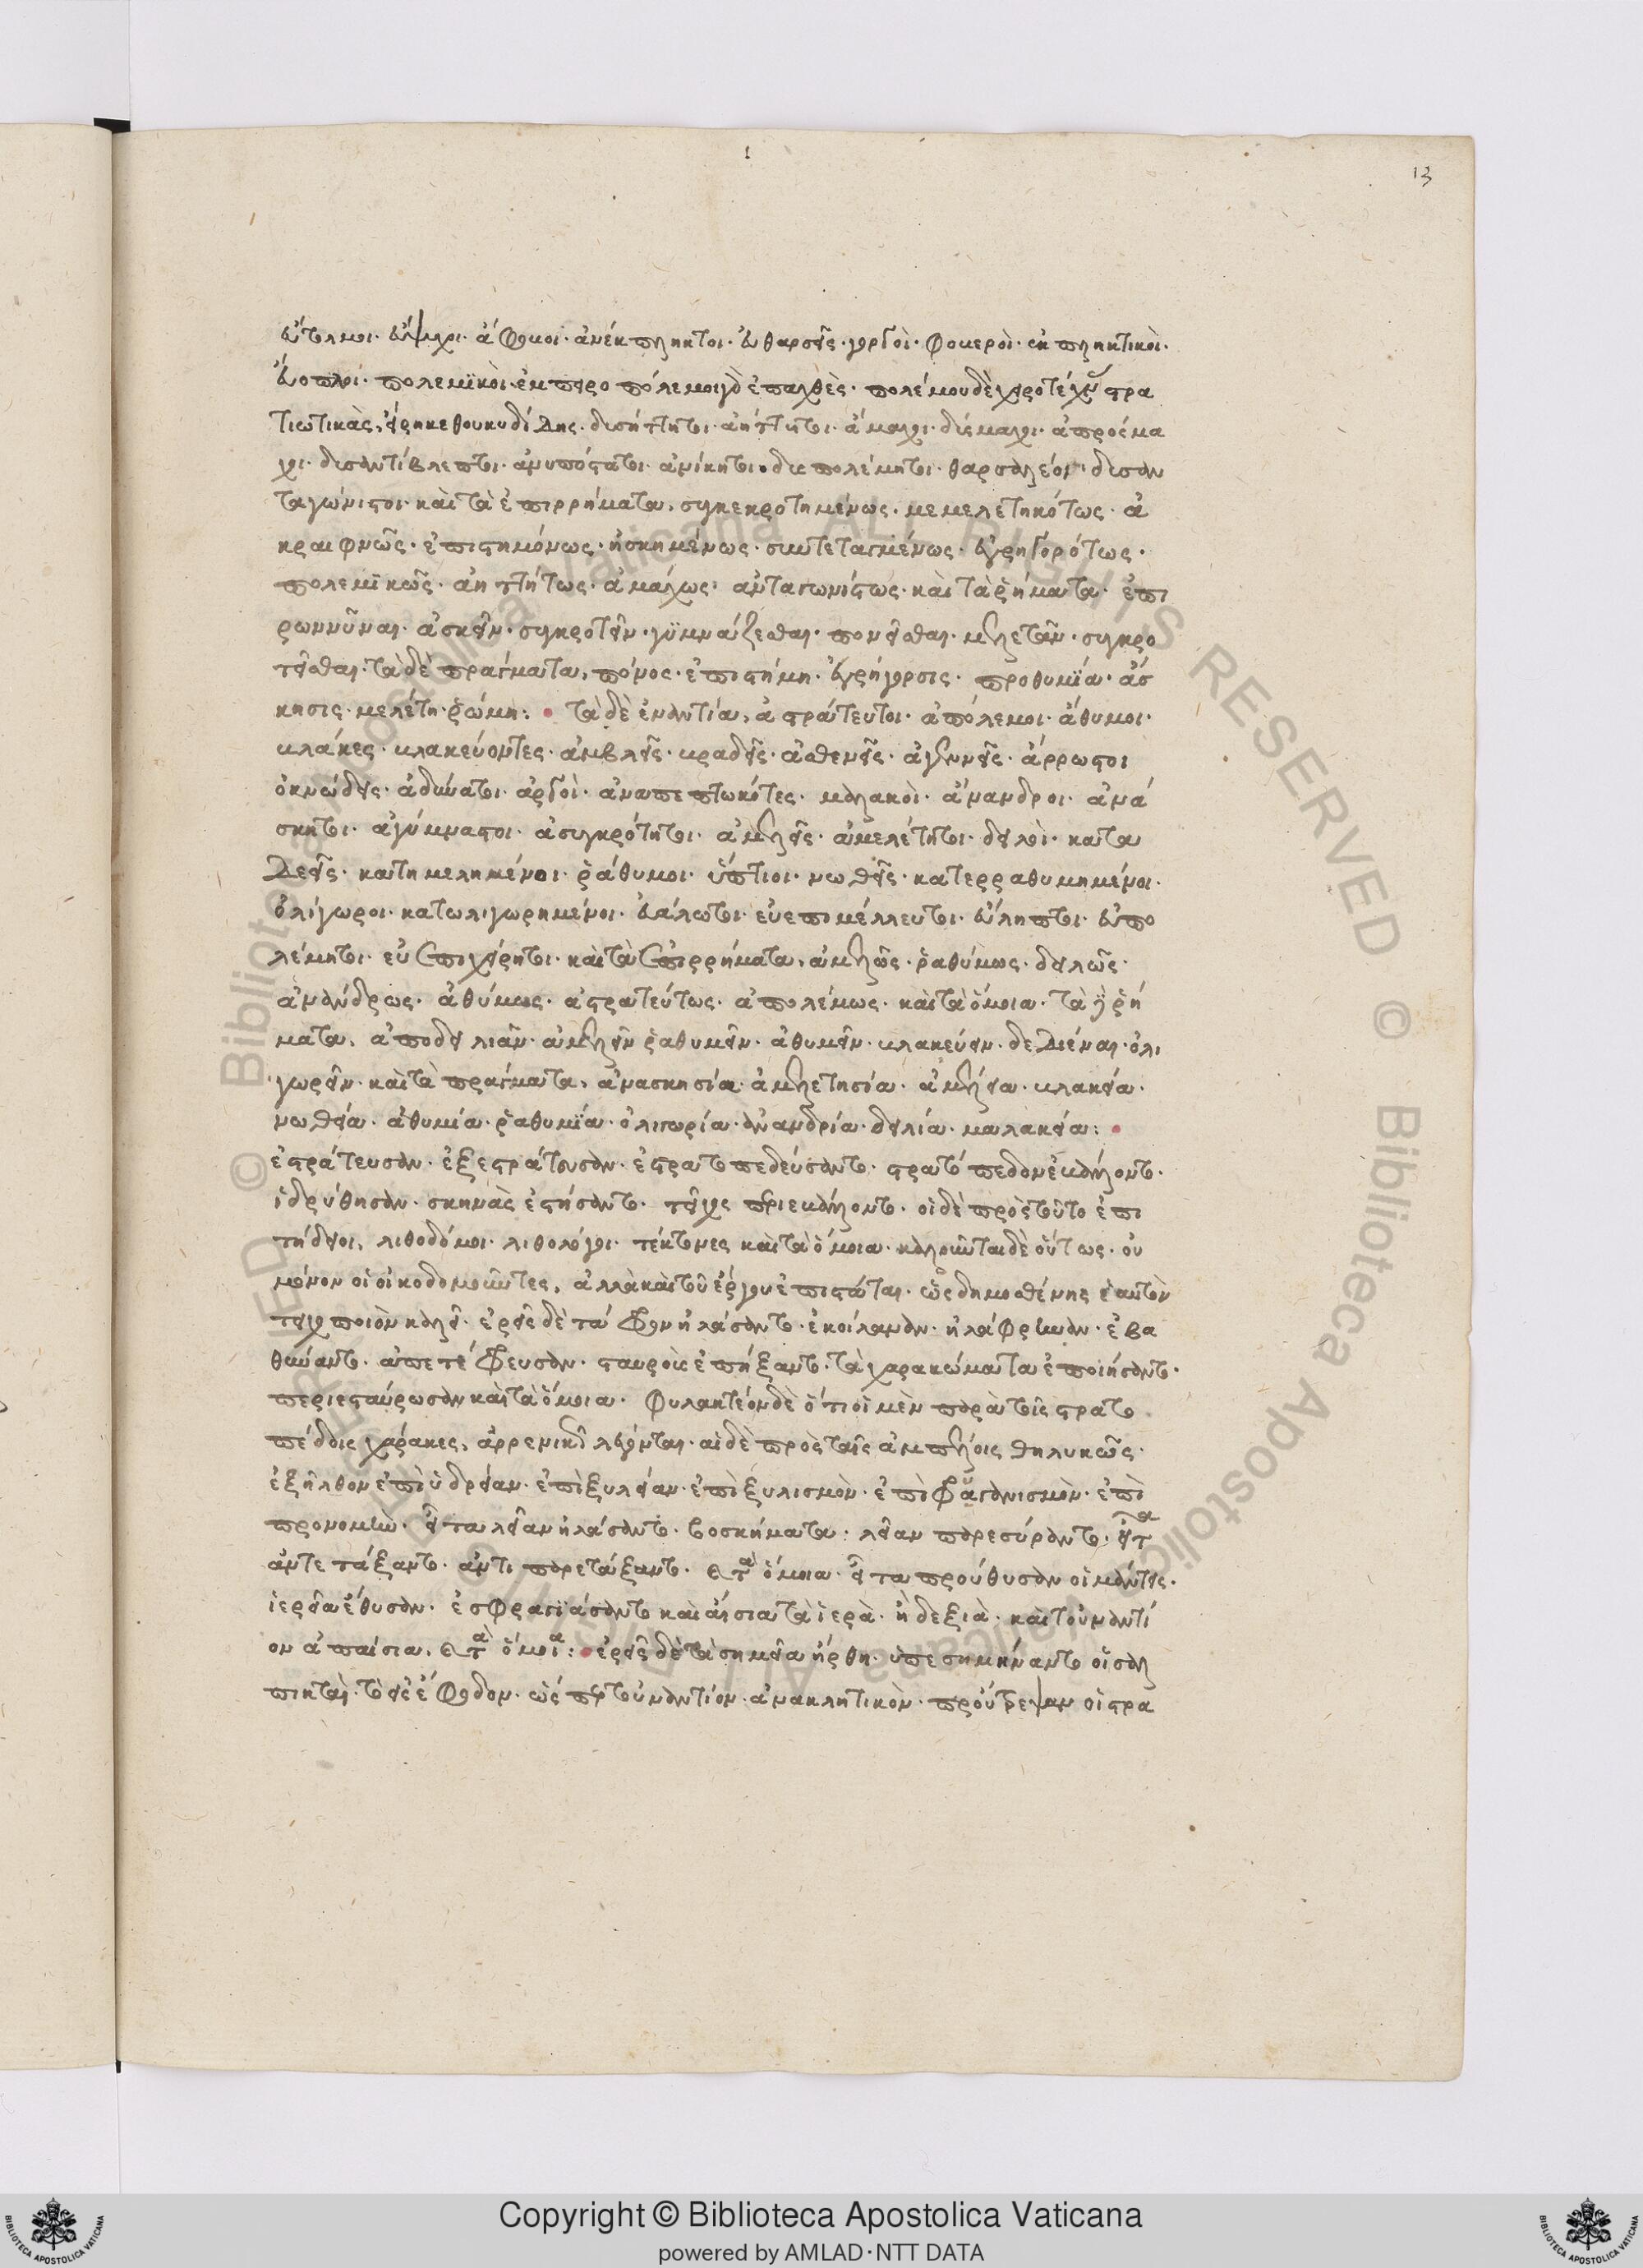 13
εὔτολμοι· εὔψυχοι· ἄφοβοι· ἀνέκπληκτοι· εὐθαρσεῖς· γοργοὶ· φοβεροὶ· ἐκπληκτικοὶ·
εὔοπλοι· πολεμϊκοὶ· ἐμπειροπόλεμοι γὰρ ἐπαχθὲς· πολέμου δὲ χειροτέχνας στρα
τιωτικὰς, εἴρηκε θουκυδίδης· δυσήττητοι· ἀήττητοι· ἄμαχοι· δύσμαχοι· ἀπρόσμα
χοι· δυσαντίβλεπτοι· ἀνυπόστατοι· ἀνίκητοι· δυσπολέμητοι· θαρσαλέοι· δυσαν
ταγώνιστοι· καὶ τὰ ἐπιρρήματα, συγκεκροτημένως· μεμελετηκότως· ἀ
κραιφνῶς· ἐπιστημόνως· ἠσκημένως· συντεταγμένως· ἐγρηγορότως·
πολεμϊκῶς· ἀηττήτως· ἀμάχως· ἀνταγωνίστως· καὶ τὰ ῥήματα· ἐπι
ρωννῦναι· ἀσκεῖν· συγκροτεῖν· γϋμνάζεσθαι· πονεῖσθαι· μελετᾶν· συγκρο
τεῖσθαι· τὰ δὲ πράγματα, πόνος· ἐπιστήμη· ἐγρήγορσις· προθυμϊα· ἄσ
κησις· μελέτη· ῥώμη: τὰ δὲ ἐναντία, ἀστράτευτοι· ἀπόλεμοι· ἄθυμοι·
βλάκες· βλακεύοντες· ἀμβλεῖς· βραδεῖς· ἀσθενεῖς· ἀγεννεῖς· ἄρρωστοι
ὀκνώδεις· ἀδύνατοι· ἀργοὶ· ἀναπεπτωκότες· μαλακοὶ· ἄνανδροι· ἀνά
σκητοι· ἀγύμναστοι· ἀσυγκρότητοι· ἀμελεῖς· ἀμελέτητοι· δειλοὶ· καταδεεῖς· κατημελημένοι· ῥάθυμοι· ὕπτιοι· νωθεῖς· κατερραθυμημένοι·
ὀλίγωροι· κατωλιγωρημένοι· εὐάλωτοι· εὐεπιβούλευτοι· εὔληπτοι· εὐπο
λέμητοι· εὐεπιχείρητοι· καὶ τὰ ἐπιρρήματα, ἀμελῶς· ῥαθύμως· δειλῶς·
ἀνάνδρως· ἀθύμως· ἀστρατεύτως· ἀπολέμως· καὶ τὰ ὅμοια· τὰ δὲ ῥή
ματα, ἀποδειλιᾶν· ἀμελεῖν ῥαθυμεῖν· ἀθυμεῖν· βλακεύειν· δεδιέναι· ὀλι
γωρεῖν· καὶ τὰ πράγματα, ἀνασκησία· ἀμελετησία· ἀμέλεια· βλακεία·
νωθεία· ἀθυμία· ῥαθυμϊα· ὀλιγωρία· ἀνανδρία· δειλία· μαλακεία:
ἐστράτευσαν· ἐξεστράτευσαν· ἐστρατοπεδεύσαντο· στρατόπεδον ἐβάλοντο·
ἱδρύθησαν· σκηνὰς ἐστήσαντο· τεῖχος περιεβάλοντο· οἱ δὲ πρὸς τοῦτο ἐπι
τήδειοι, λιθοδόμοι· λιθολόγοι· τέκτονες καὶ τὰ ὅμοια· καλοῦνται δὲ οὕτως· οὐ
μόνον οἱ οἰκοδομοῦντες, ἀλλὰ καὶ τοῦ ἔργου ἐπιστάται· ὡς δημοσθένης ἑαυτὸν
τειχοποιὸν καλεῖ· ἐρεῖς δὲ τάφρον ἠλάσαντο· ἐκοίλαναν· ἠλάφρυναν· ἐβα
θύναντο· ἀπετάφρευσαν· σταυροὺς ἐπήξαντο· τὰ χαρακώματα ἐποιήσαντο·
περιεσταύρωσαν καὶ τὰ ὅμοια· φυλακτέον δὲ ὅτι οἱ μὲν παρὰ τοῖς στρατο
πέδοις χάρακες, ἀρρενικῶς λέγονται· αἱ δὲ πρὸς ταῖς ἀμπέλοις θηλυκῶς·
ἐξῆλθον ἐπὶ ὑδρείαν· ἐπὶ ξυλείαν· ἐπὶ ξυλισμὸν· ἐπὶ φρυγανισμὸν· ἐπὶ
προνομὴν· εἶτα λείαν ἠλάσαντο· βοσκήματα: λείαν παρεσύραντο· εἶτα
ἀντετάξαντο· ἀντιπαρετάξαντο· καὶ τὰ ὅμοια· εἶτα προύθυσαν οἱ μάντεις·
ἱερεῖα ἔθυσαν· ἐσφαγϊάσαντο καὶ αἴσια τὰ ἱερὰ· ἢ δεξιὰ· καὶ τοὐναντί
ον ἀπαίσια, καὶ τὰ ὅμοια: ἐρεῖς δὲ τὰ σημεῖα ἤρθη· ὑπεσημήναντο οἱ σαλ
πιγκταὶ· τὸ εἰς ἔφοδον· ὡσπερ τοὐναντίον· ἀνακλητικὸν· προύτρεψαν οἱ στρα
Copyright © Biblioteca Apostolica Vaticana
powered by AMLAD · NTT DATA